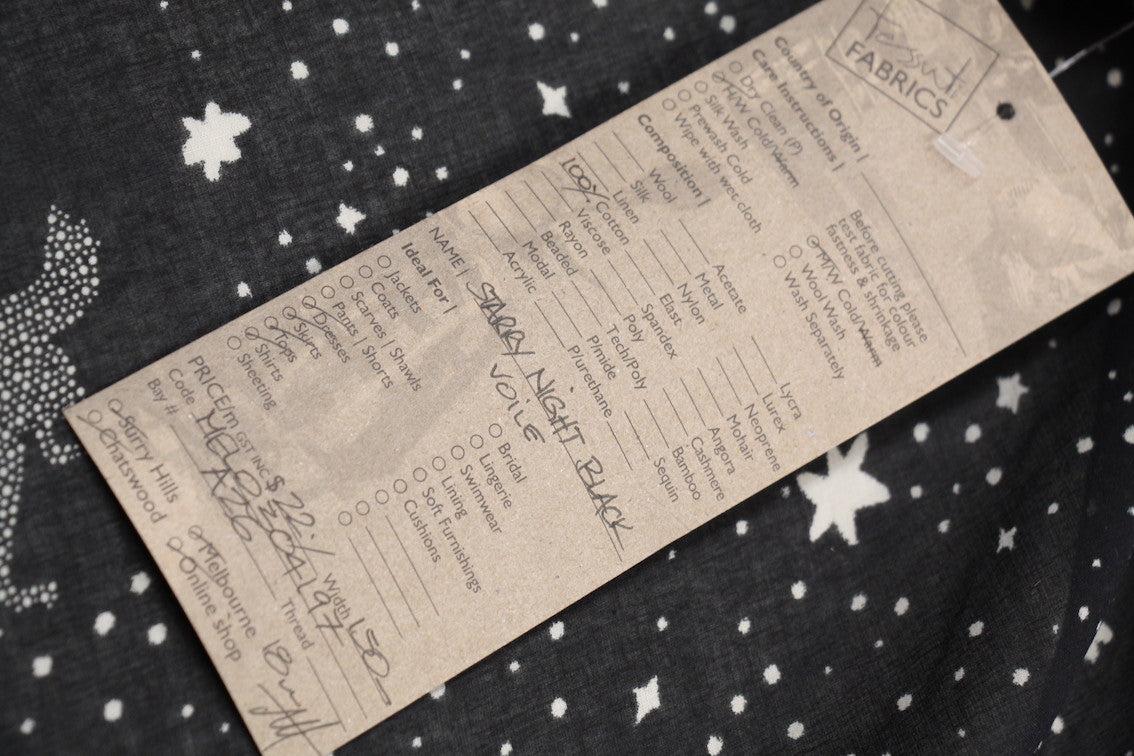 Tessuti
FABRICS
Country of Origin |
Care Instructions |
Dry Clean (P)
H/W Cold/Warm
Silk Wash
Prewash Cold
Wipe with wet cloth
Before cutting please
test fabric for colour
fastness & shrinkage
M/W Cold/Warm
Wool Wash
Wash Separately
Composition |
Wool
Silk
Linen
100% Cotton
Viscose
Rayon
Beaded
Modal
Acrylic
Acetate
Metal
Nylon
Elast
Spandex
Tech/Poly
Poly
P/mide
P/urethane
Lycra
Lurex
Neoprene
Mohair
Angora
Cashmere
Bamboo
Sequin
NAME | STARRY NIGHT BLACK
VOILE
Ideal For |
Jackets
Coats
Scarves | Shawls
Pants | Shorts
Dresses
Skirts
Tops
Shirts
Sheeting
Bridal
Lingerie
Swimwear
Lining
Soft Furnishings
Cushions
PRICE/m GST INC $ 22/- Width 150
Code
Bay # A26 Thread
Surry Hills
Chatswood
Melbourne
Online shop